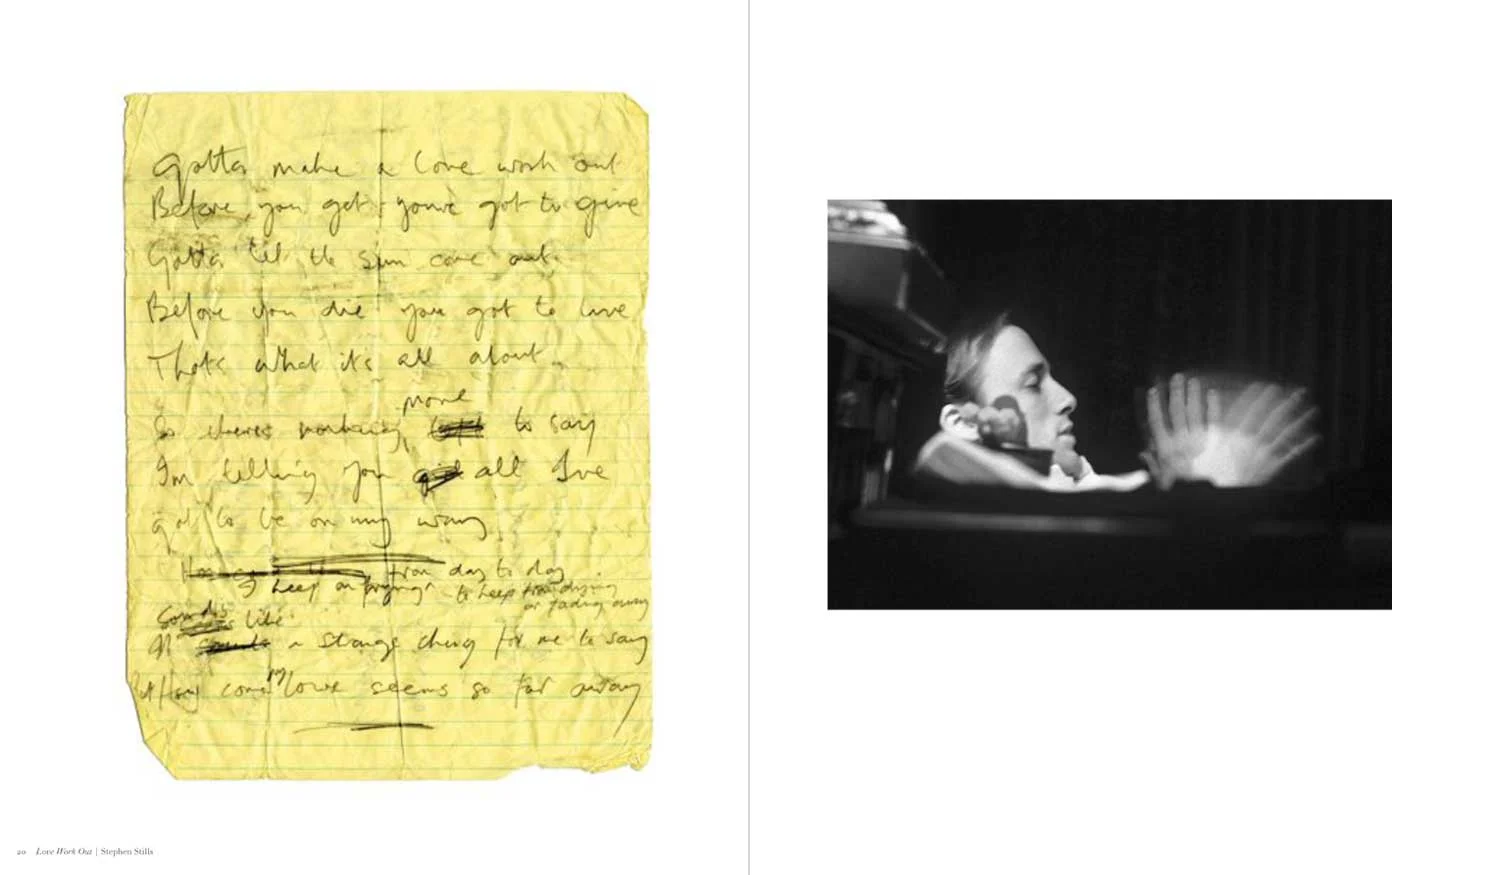 Gotta make a love work out
Before you get youve got to give
Gotta let the sun come out
Before you die you got to live
Thats what it's all about
more
So theres nothing to say
Im telling you all Ive
got to be on my way
from day to day
I keep on trying to keep from dying
or fading away
Sounds like
a strange thing for me to say
But Hey come my love seems so far away
20 Love Work Out | Stephen Stills